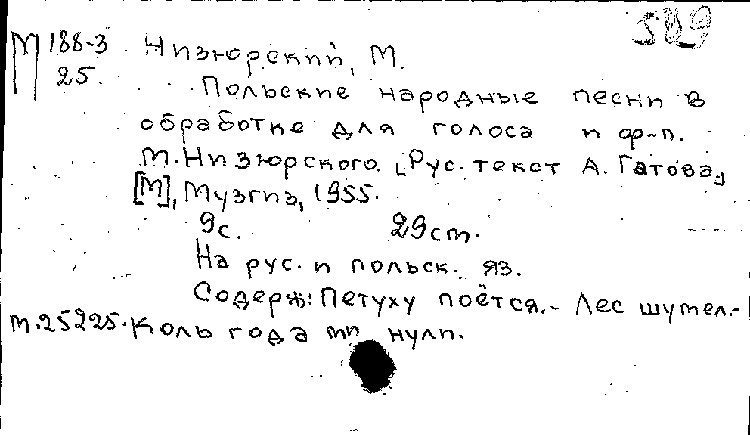 589
М 188-3 Низюрский, М.
25. Польские народные песни в
обработке для голоса и ф-п.
М. Низюрского. [Рус. текст А. Гатова]
[М], Музгиз, 1955.
9с. 29 cm.
На рус. и польск. яз.
Содерж: Петуху поётся. - Лес шумел. -
М. 25225. Коль года нули.